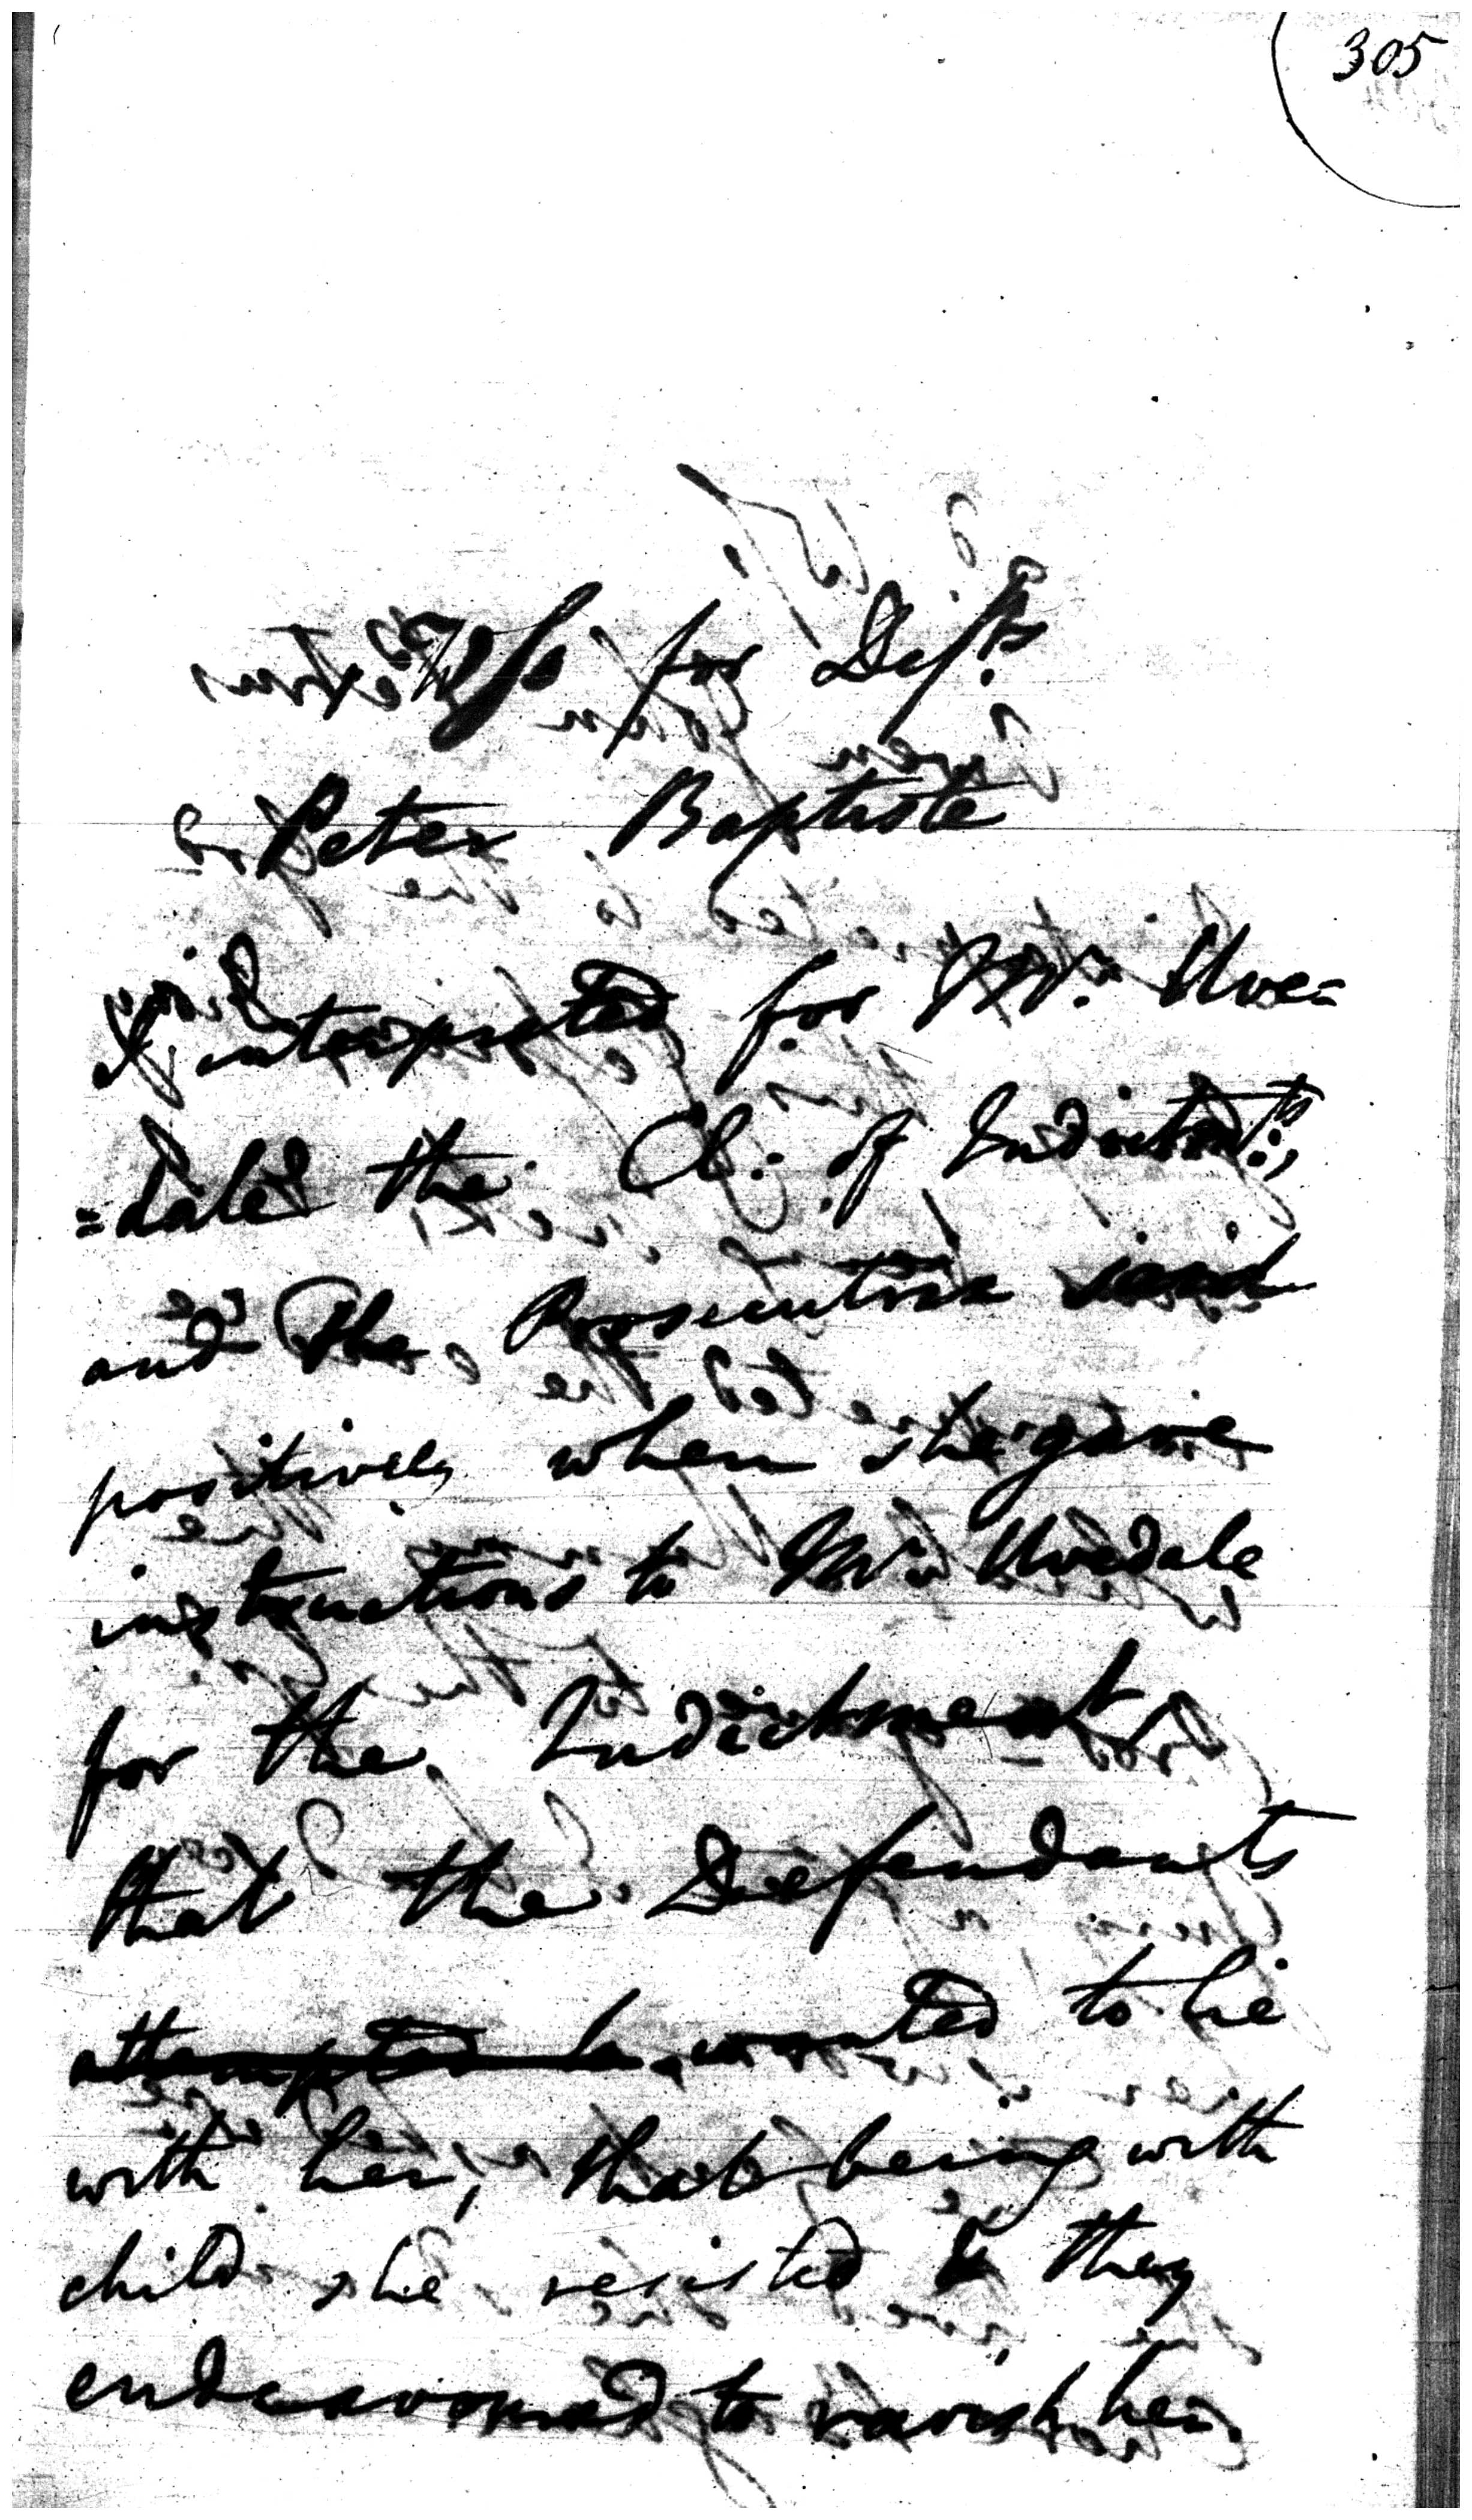 305
for Def.ts
Peter Baptiste
I interpreted for Mr. Uve=
=dale the Cl: of Indictm:ts,
and the Prosecutrix said
positively when she gave
instructions to Mr. Uvedale
for the Indictment
that the Defendants
attempted wanted to lie
with her, that being with
child she resisted & they
endeavoured to ravish her.